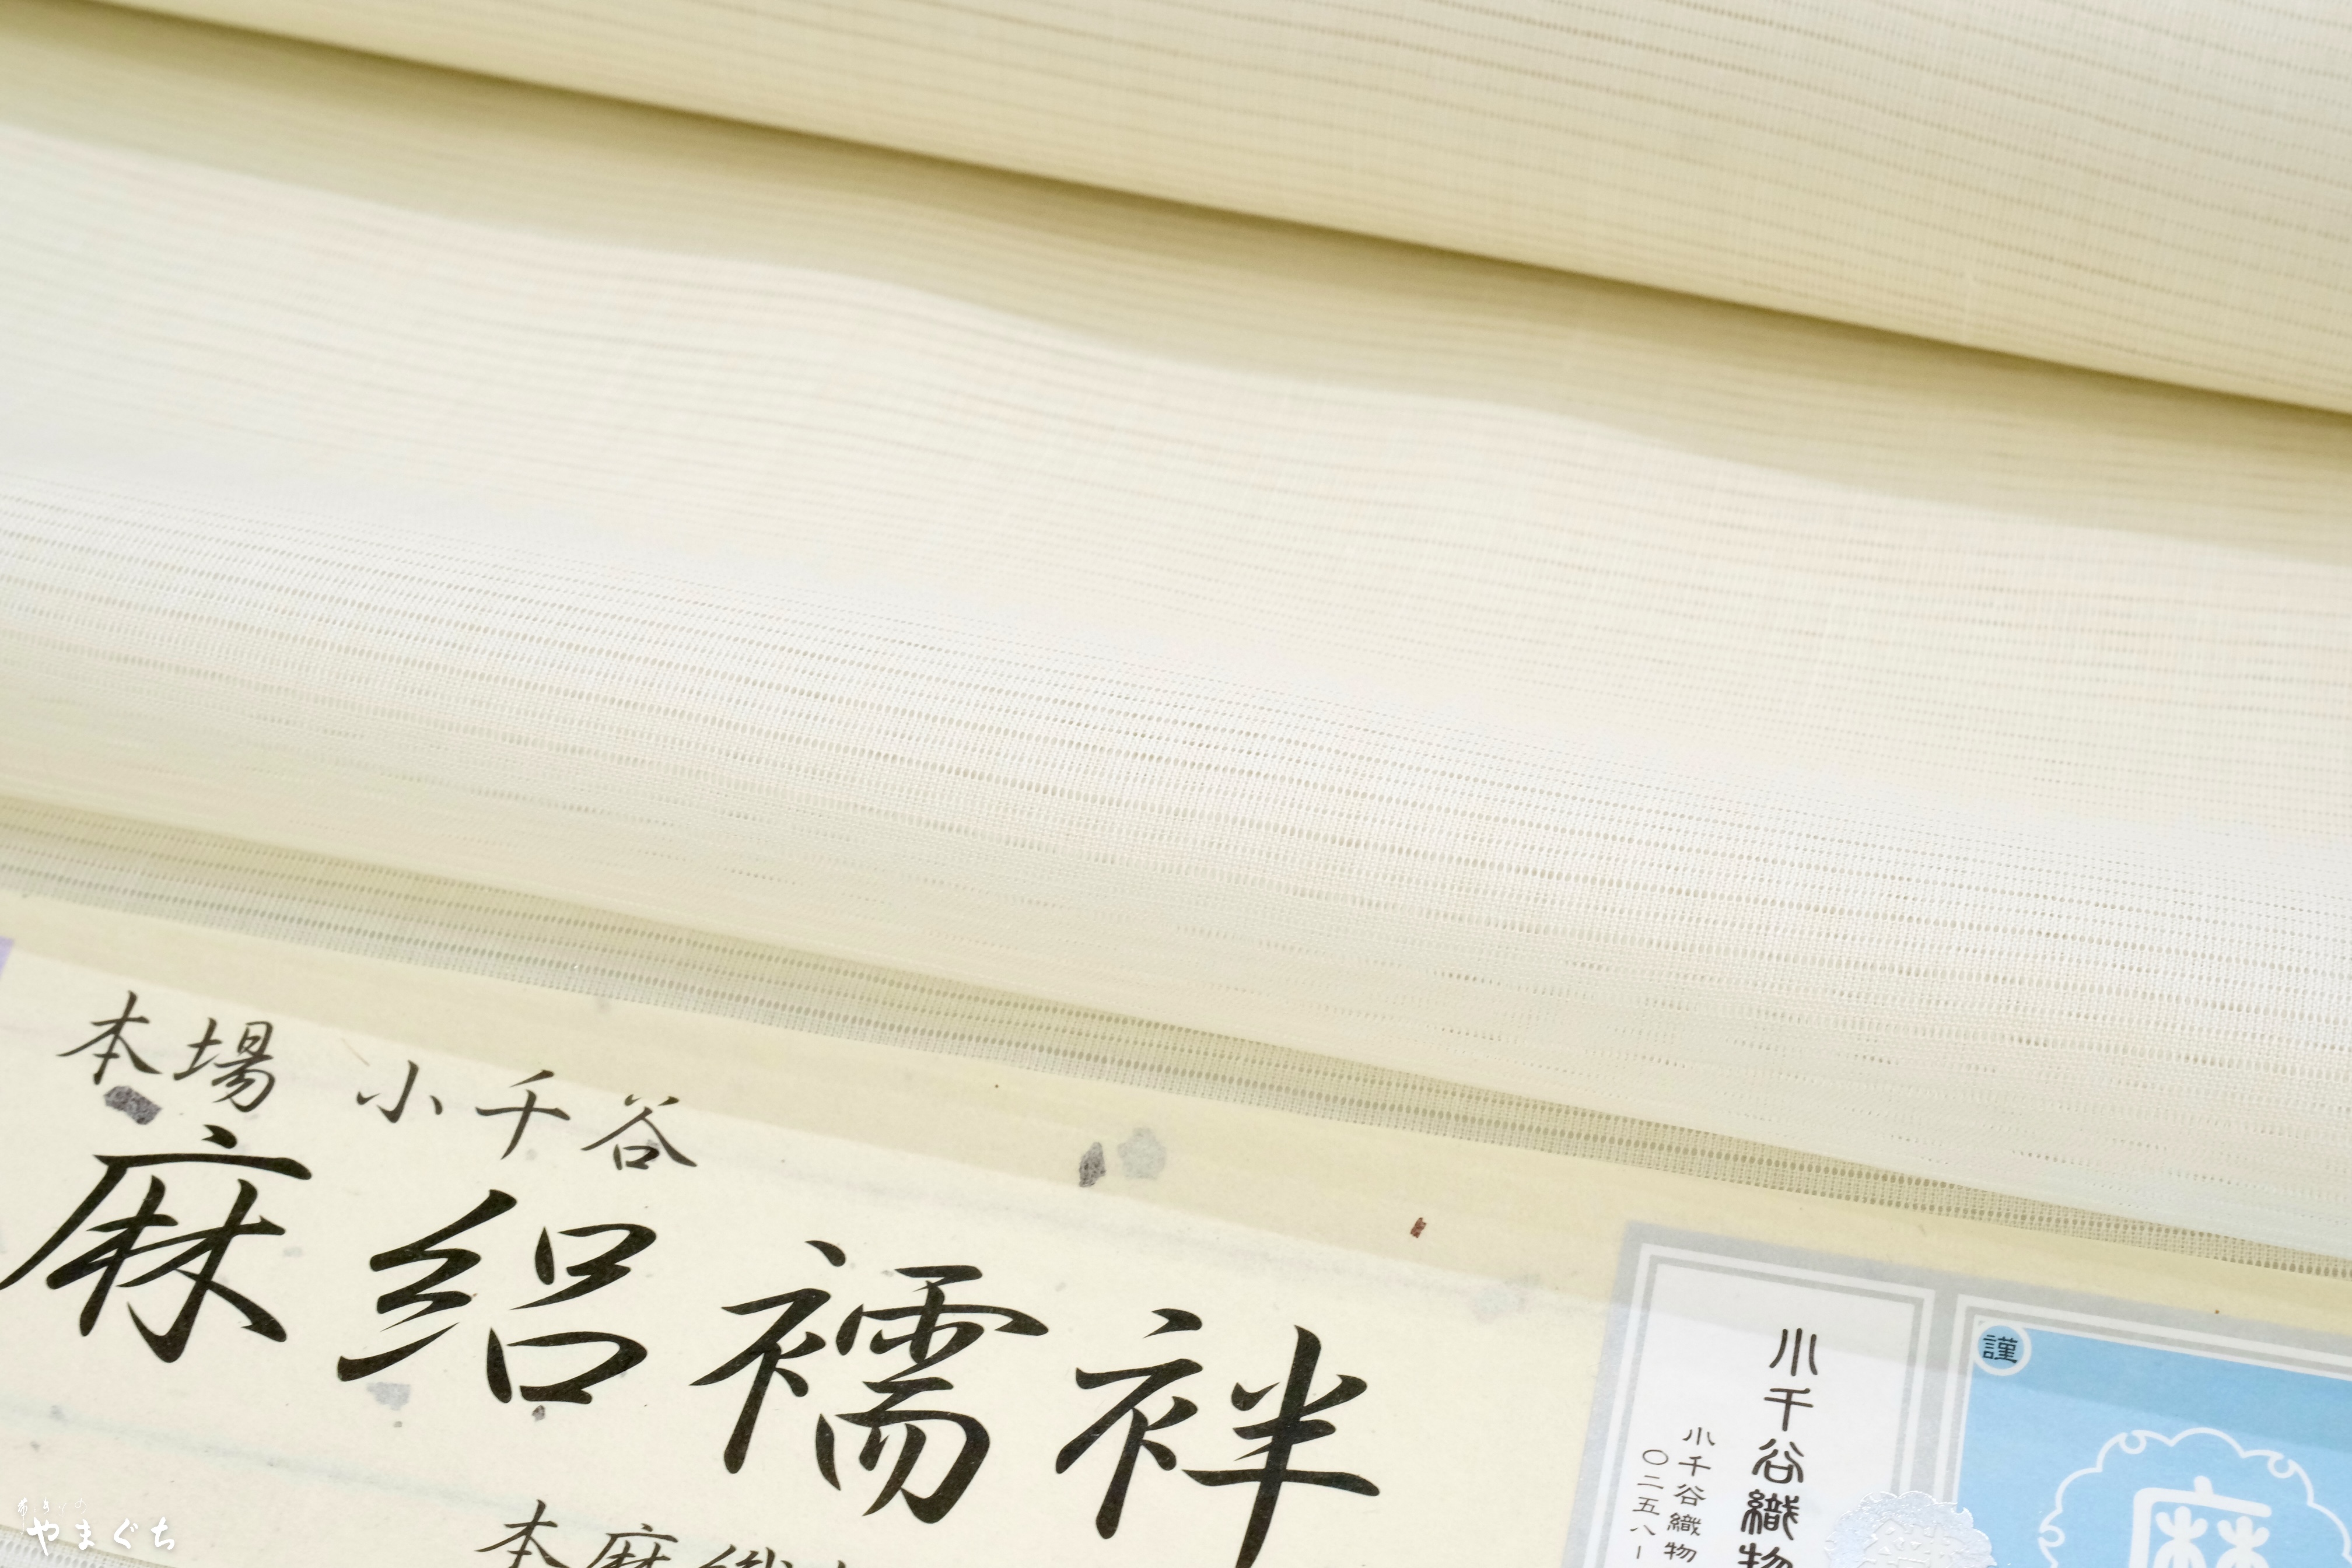 本場 小千谷
麻絽襦袢
本麻
小千谷織物
小千谷織物
〇二五八ー
謹
麻
やまぐち